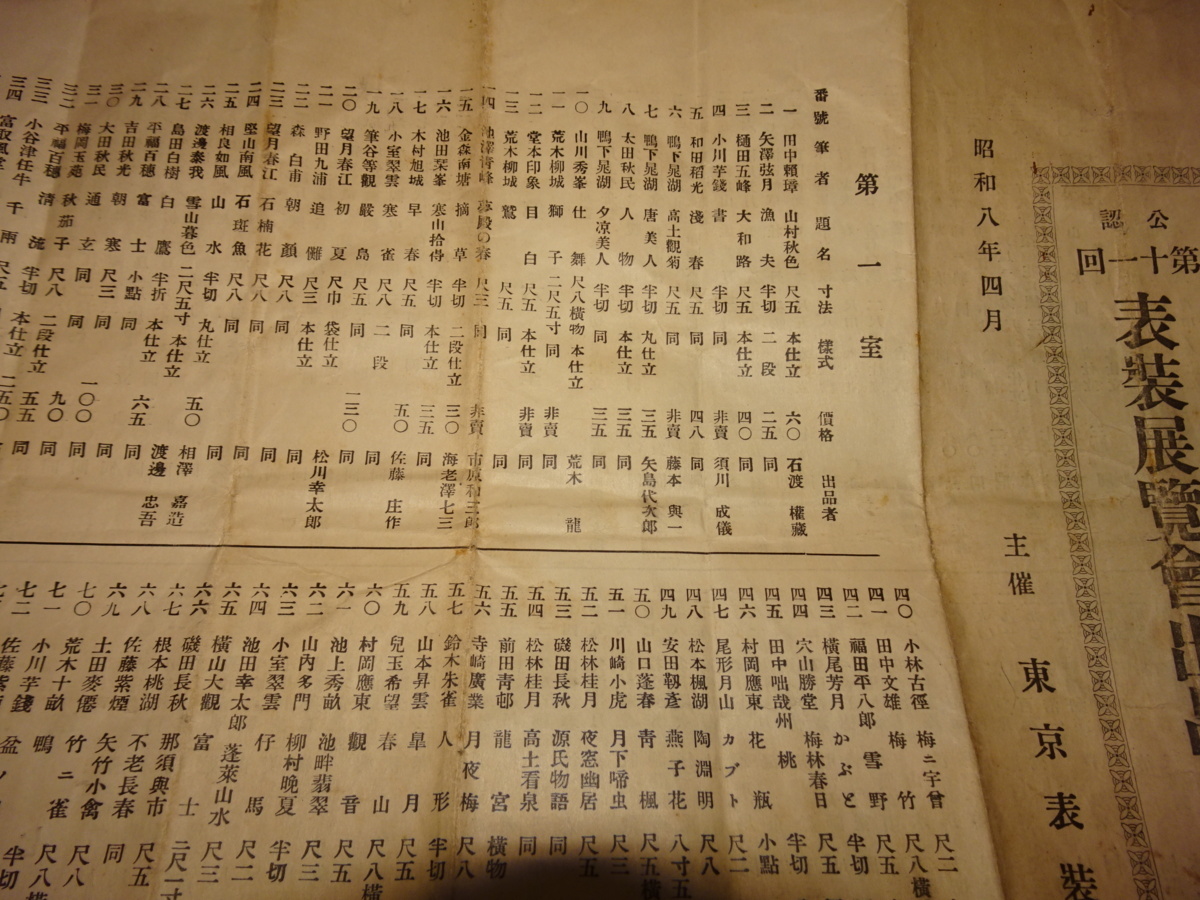 公認
第十一回
表裝展覽會出品
昭和八年四月
主催 東京表裝
第一室
番號 筆者 題名 寸法 樣式 價格 出品者
一 田中賴璋 山村秋色 尺五 本仕立 六〇 石渡權藏
二 矢澤弦月 漁夫 半切 二段 二五 同
三 樋田五峰 大和路 尺五 本仕立 四〇 同
四 小川芋錢 書 半切 同 非賣 須川成儀
五 和田稻光 淺春 尺五 同 四八 同
六 鴨下晁湖 高士觀菊 尺五 同 非賣 藤本與一
七 鴨下晁湖 唐美人 半切 丸仕立 三五 矢島代次郎
八 太田秋民 人物 半切 本仕立 三五 同
九 鴨下晁湖 夕凉美人 半切 同 三五 同
一〇 山川秀峯 仕舞 尺八橫物 本仕立 荒木龍
一一 荒木柳城 獅子 二尺五寸 同 非賣 同
一二 堂本印象 目白 尺五 本仕立 同
一三 荒木柳城 鷲 尺五 同 非賣 同
一四 池澤靑峰 殿の春 尺三 同 非賣 市原和三郎
一五 金森南塘 摘草 半切 二段仕立 三〇 海老澤七三
一六 池田栞峯 寒山拾得 半切 本仕立 三五 同
一七 木村旭城 早春 尺五 同
一八 小室翠雲 寒雀 尺五 二段 五〇 佐藤庄作
一九 筆谷等觀 嚴島 尺五 同 同
二〇 望月春江 初夏 尺巾 袋仕立 一三〇 同
二一 野田九浦 追儺 尺三 本仕立 松川幸太郎
二二 森白甫 朝顏 尺八 同 同
二三 望月春江 石楠花 尺八 同 同
二四 堅山南風 石斑魚 尺八 同 同
二五 相良如風 山水 半切 丸仕立 同
二六 渡邊泰我 雪山暮色 二尺五寸 本仕立 五〇 相澤嘉造
二七 島田白樹 白鷹 半折 本仕立 渡邊忠吾
二八 平福百穗 富士 小點 同 六五 同
二九 吉田秋光 朝寒 尺三 同 同
三〇 大田秋民 通玄 同 同 一〇〇 同
三一 梅岡玉苑 秋茄子 尺八 二段仕立 九〇 同
三二 平福百穗 清流 半切 本仕立 五五 同
三三 小谷津任牛 千雨 尺五 二五〇 同
三四 富取風堂
四〇 小林古徑 梅ニ宇曾 尺二
四一 田中文雄 梅竹 尺八橫
四二 福田平八郎 雪野 尺五
四三 橫尾芳月 かぶと 半切
四四 穴山勝堂 梅林春日 尺五
四五 田中咄哉州 桃 半切
四六 村岡應東 花瓶 小點
四七 尾形月山 カブト 尺二
四八 松本楓湖 陶淵明 尺八
四九 安田靫彥 燕子花 八寸五
五〇 山口蓬春 靑楓 尺五橫
五一 川崎小虎 月下啼虫 尺三
五二 松林桂月 夜窓幽居 尺五
五三 磯田長秋 源氏物語 同
五四 松林桂月 高士看泉 同
五五 前田靑邨 龍宮 橫物
五六 寺崎廣業 月夜梅 尺八
五七 鈴木朱雀 人形 半切
五八 山本昇雲 皐月 尺五
五九 兒玉希望 春山 尺八橫
六〇 村岡應東 觀音 尺五
六一 池上秀畝 池畔翡翠 尺三
六二 山內多門 柳村晚夏 半切
六三 小室翠雲 仔馬 尺二
六四 池田幸太郎 蓬萊山水 尺三
六五 橫山大觀 富士 二尺一寸
六六 磯田長秋 那須與市 尺五
六七 根本桃湖 不老長春 同
六八 佐藤紫煙 矢竹小禽 尺八
六九 土田麥僊 竹ニ雀 尺八橫
七〇 荒木十畝 鴨 半切
七一 小川芋錢 盆ノ
七二 佐藤紫